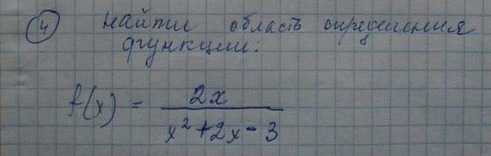 4 Найти область определения
функции:
f(x) = 2x / x² + 2x - 3